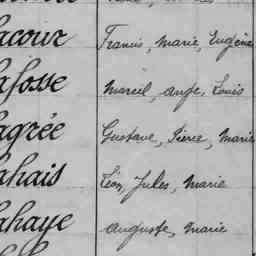 acour Francis, Marie, Eugène
afosse Marcel, Ange, Louis
agrée Gustave, Pierre, Marie
ahais Léon, Jules, Marie
ahaye Auguste, Marie